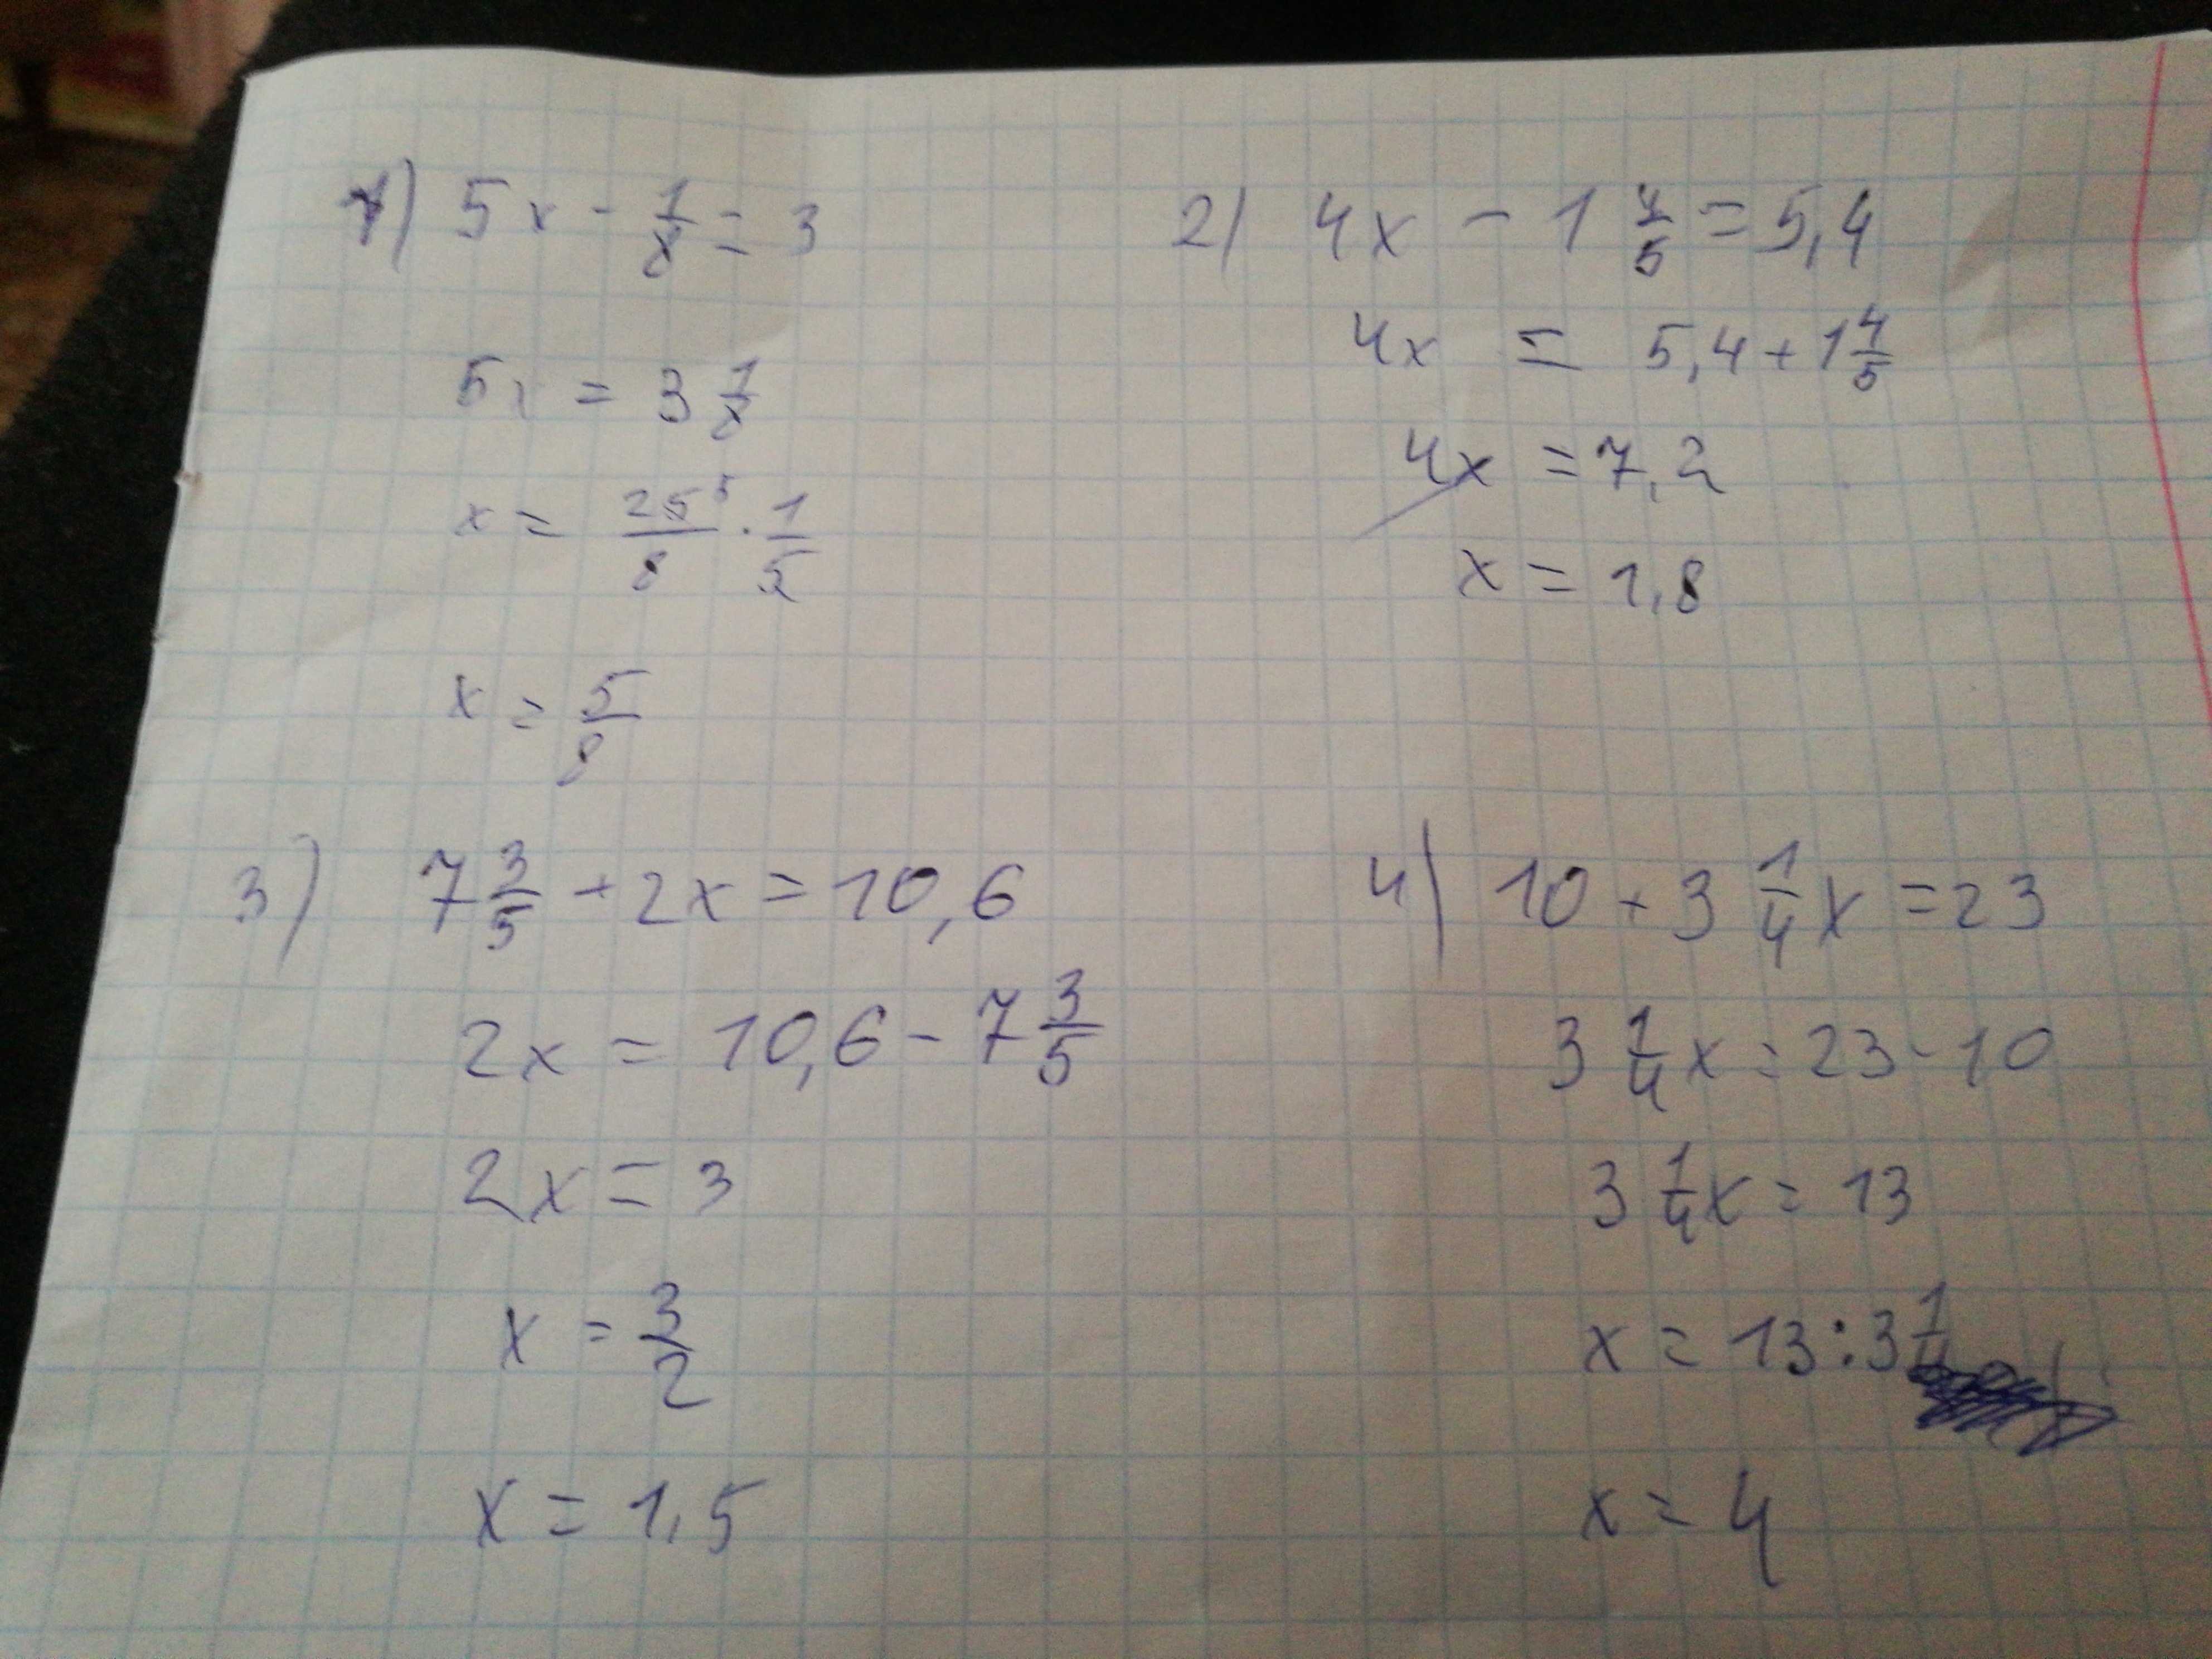 1) 5x - 1/8 = 3
5x = 3 1/8
x = 25⁵/8 · 1/5
x = 5/8
2) 4x - 1 4/5 = 5,4
4x = 5,4 + 1 4/5
4x = 7,2
x = 1,8
3) 7 3/5 + 2x = 10,6
2x = 10,6 - 7 3/5
2x = 3
x = 3/2
x = 1,5
4) 10 + 3 1/4 x = 23
3 1/4 x = 23 - 10
3 1/4 x = 13
x = 13 : 3 1/4
x = 4